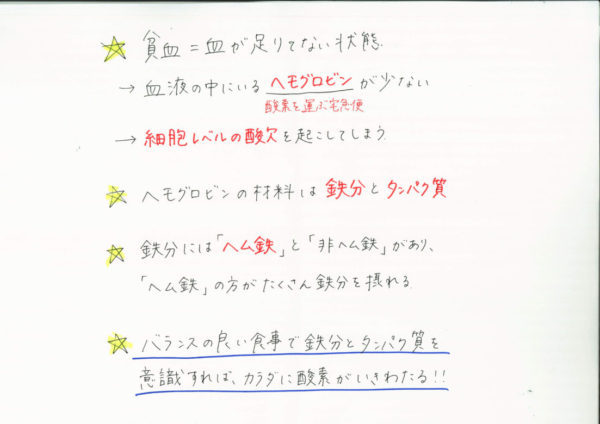 ☆ 貧血=血が足りてない状態
→ 血液の中にいるヘモグロビンが少ない
酸素を運ぶ宅急便
→ 細胞レベルの酸欠を起こしてしまう
☆ ヘモグロビンの材料は鉄分とタンパク質
☆ 鉄分には「ヘム鉄」と「非ヘム鉄」があり、
「ヘム鉄」の方がたくさん鉄分を摂れる
☆ バランスの良い食事で鉄分とタンパク質を
意識すれば、カラダに酸素がいきわたる!!